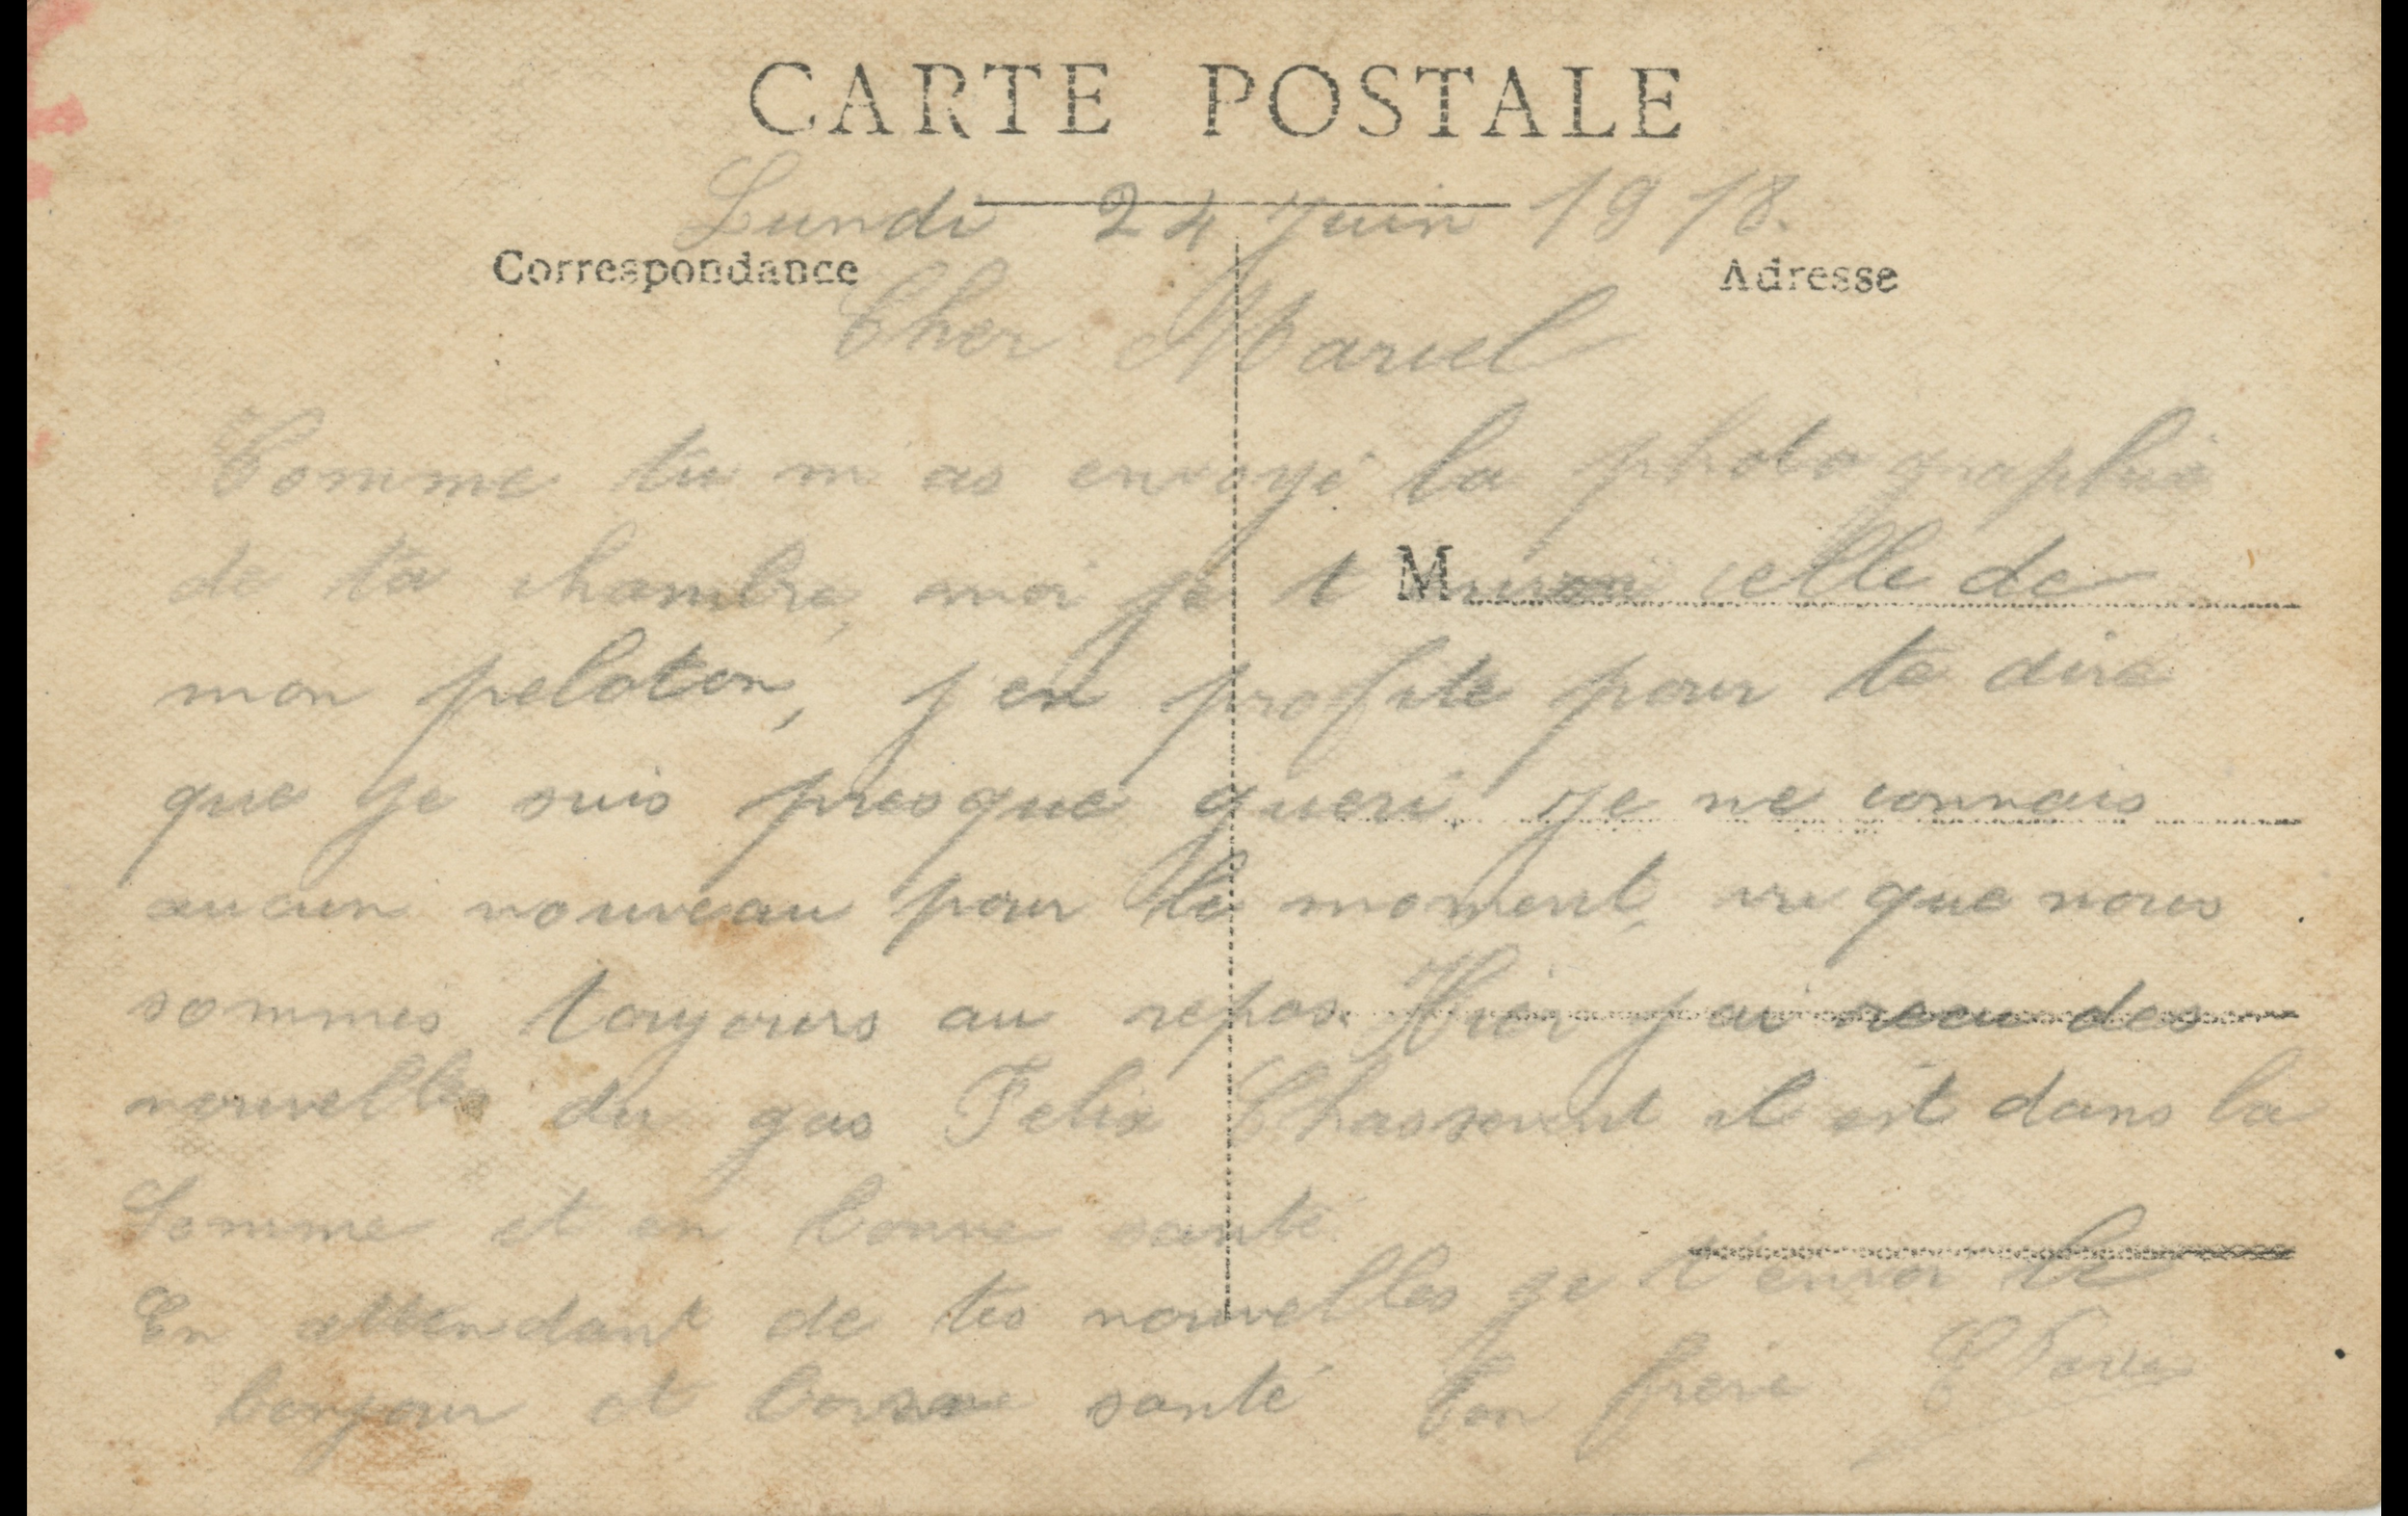 CARTE POSTALE
Lundi 24 Juin 1918.
Correspondance
Adresse
Cher Marcel
Comme tu m as envoyé la photographie
de ta chambre, moi je t envoi celle de
M
mon peloton, j en profite pour te dire
que je suis presque gueri, je ne connais
aucun nouveau pour le moment, vu que nous
sommes toujours au repos. Hier j ai recu des
nouvelles du gas Felix il est dans la
Somme et en bonne santé
En attendant de tes nouvelles je t'envoi le
bonjour et bonne santé Ton frere